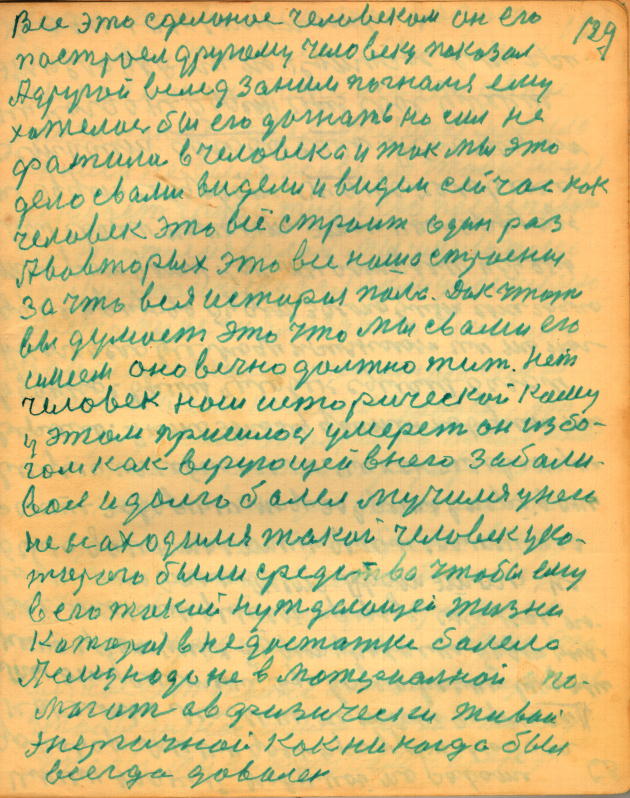 129
Все это сделоное человеком он его
построел другому человеку показал
А другой вслед заним погнался ему
хотелос бы его догнать но сил не
фатила в человека и так мы это
дело свами видели и видем сейчас как
человек это всё строит один раз
А вовторых это все наша строения
За что вся история пала. Дак что
вы думает это что мы свами его
имеем оно вечно должно жит. Нет
человек наш исторической кому
в этом пришлос умерет он избо-
гом как верующей внего Забали-
вал и долго болел мучился унего
не находился такой человек уко-
торого были средства чтобы ему
в его такой нуждающей жизни
Которая в недостатке болела
Ему надо не в материалной по-
могат а в физически живой
энергичной как никогда был
всегда доволен